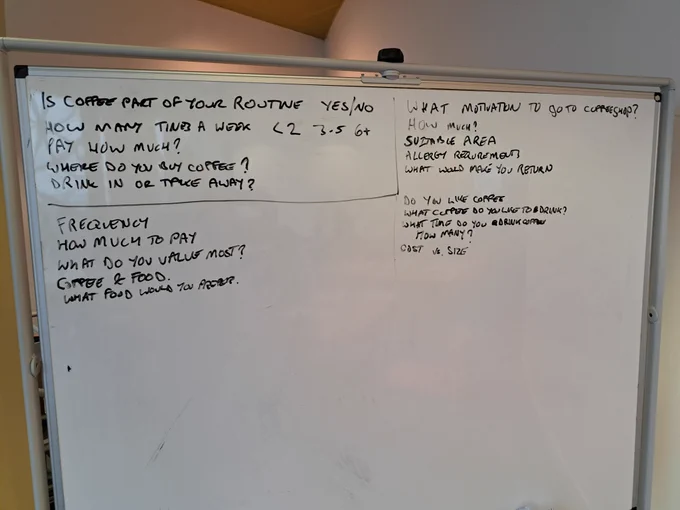 IS COFFEE PART OF YOUR ROUTINE YES/NO
HOW MANY TIMES A WEEK <2 3-5 6+
PAY HOW MUCH?
WHERE DO YOU BUY COFFEE?
DRINK IN OR TAKE AWAY?
FREQUENCY
HOW MUCH TO PAY
WHAT DO YOU VALUE MOST?
COFFEE & FOOD.
WHAT FOOD WOULD YOU PREFER.
WHAT MOTIVATION TO GO TO COFFEESHOP?
HOW MUCH?
SUITABLE AREA
ALLERGY REQUIREMENTS
WHAT WOULD MAKE YOU RETURN
DO YOU LIKE COFFEE
WHAT COFFEE DO YOU LIKE TO DRINK?
WHAT TIME DO YOU DRINK COFFEE
HOW MANY?
COST vs. SIZE